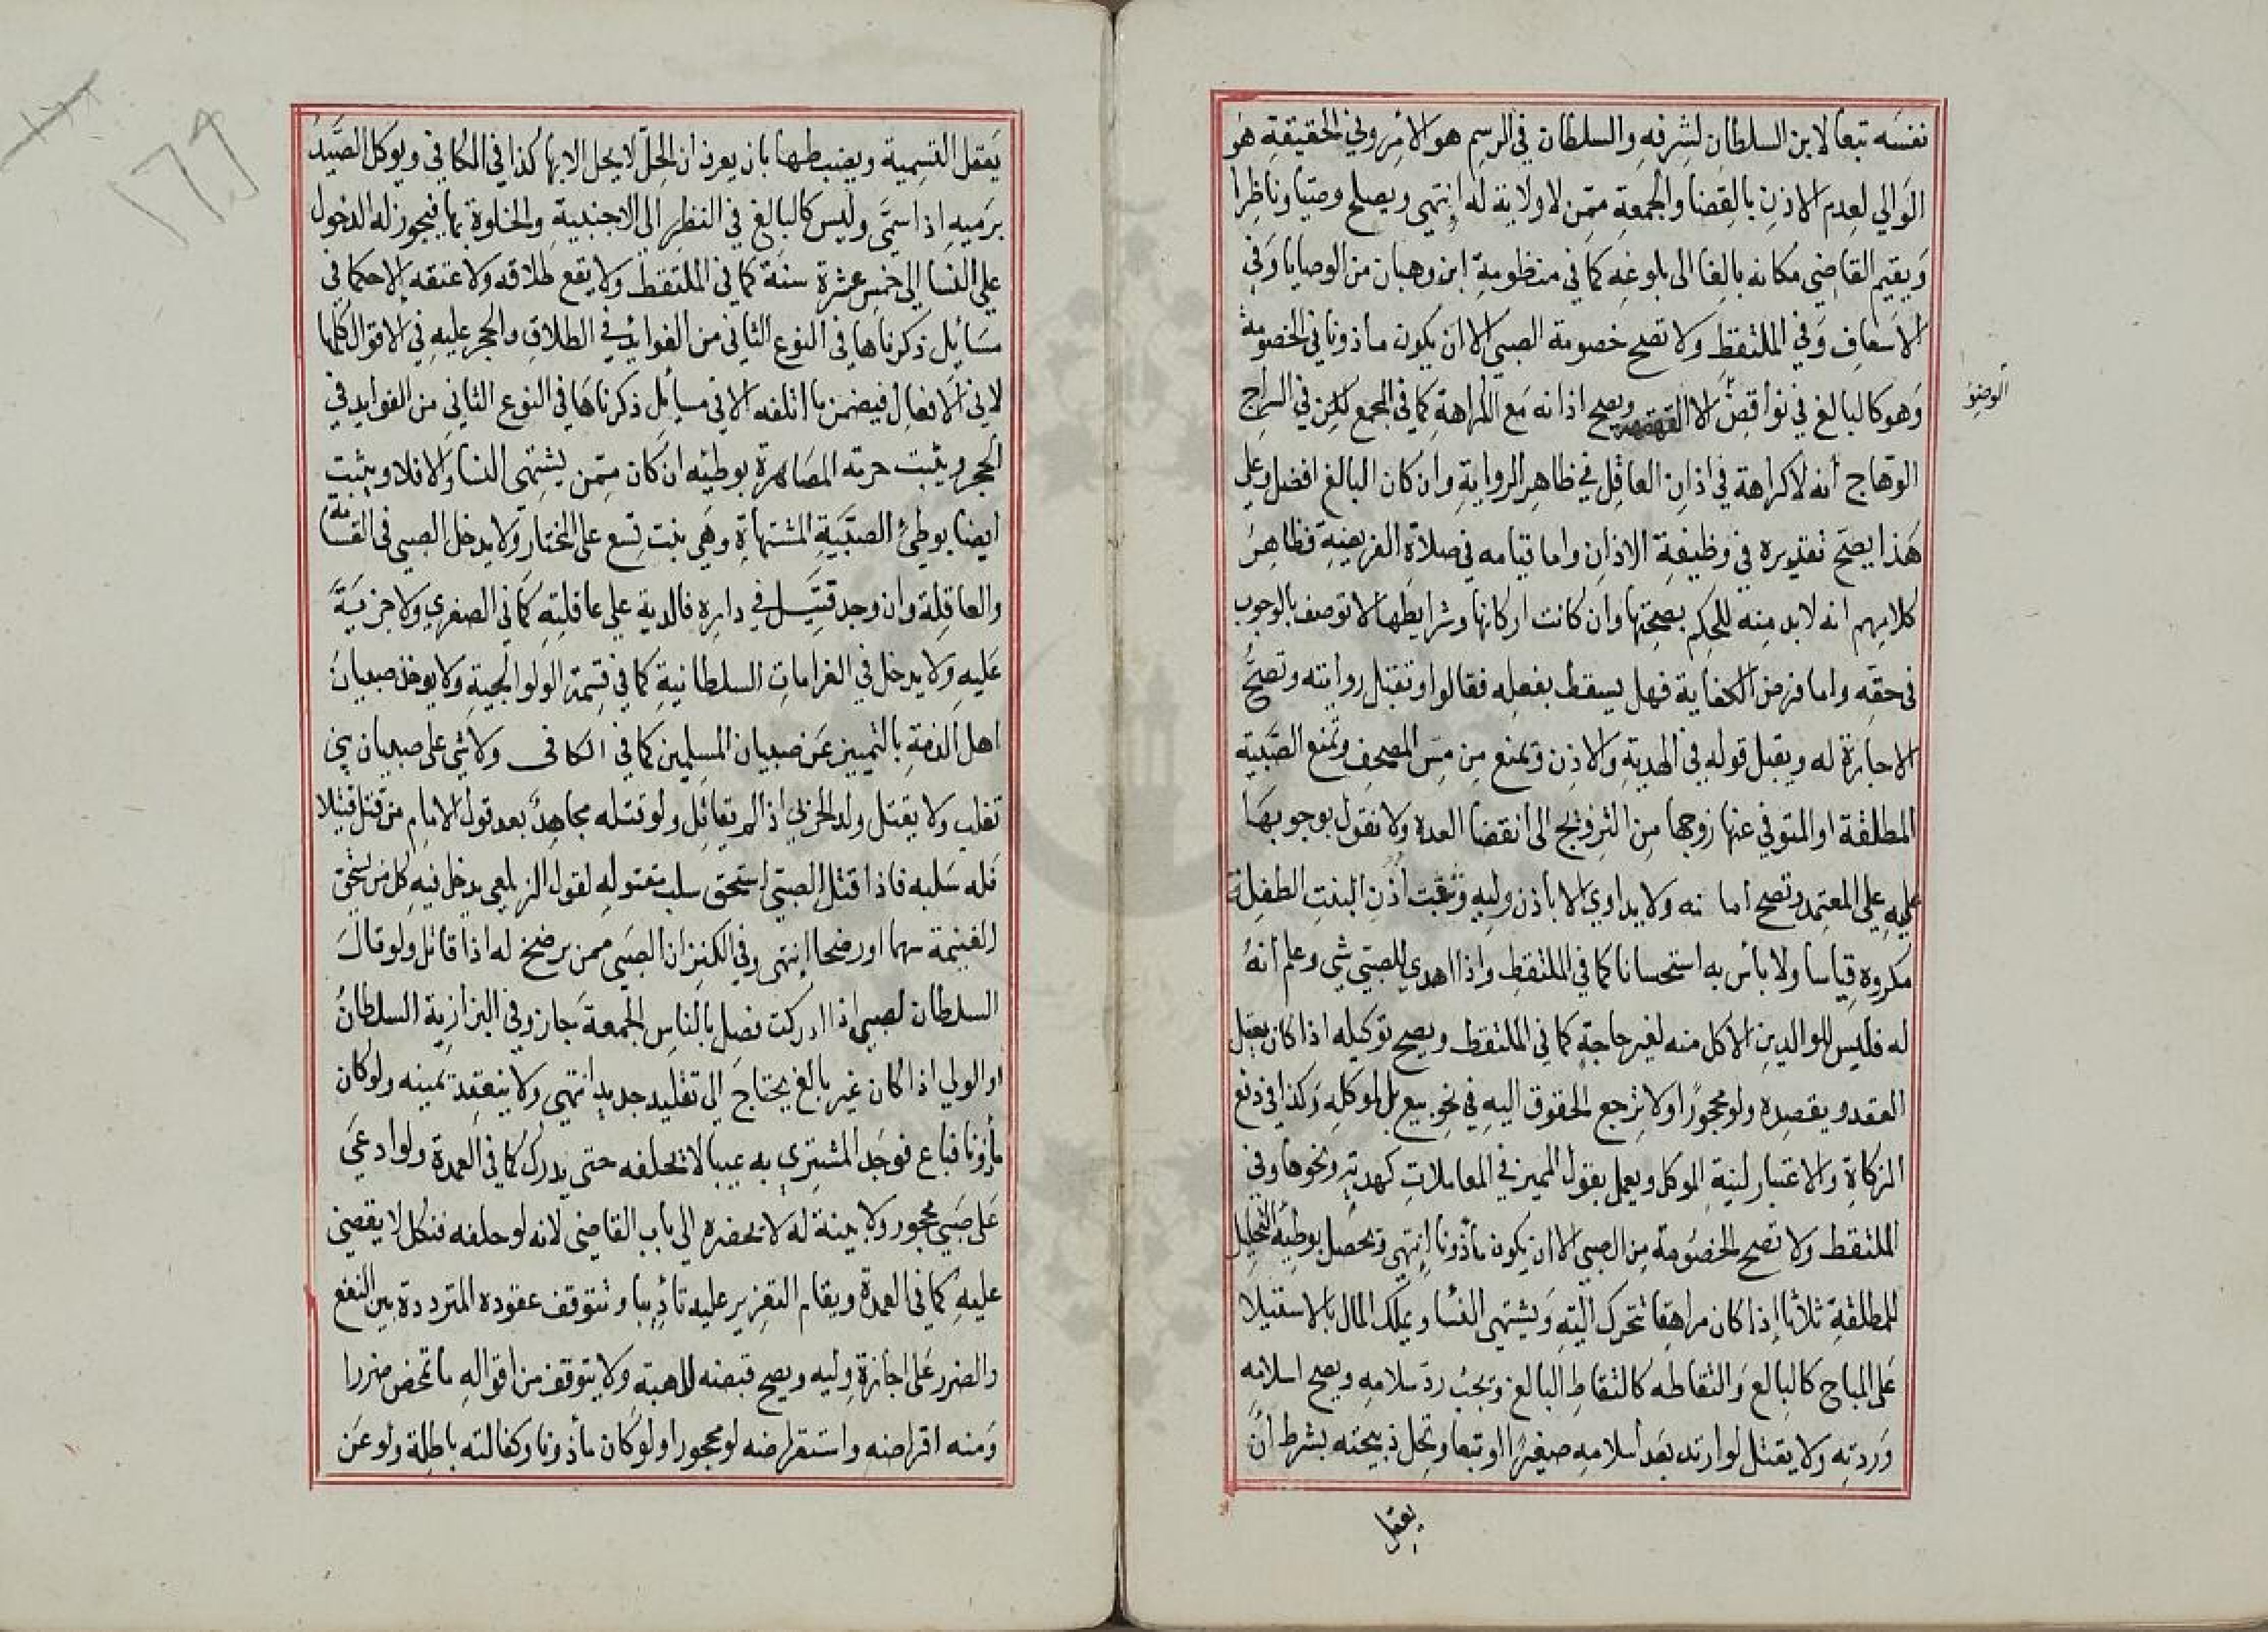 نفسه تبعا لابن السلطان لشرفه والسلطان في الرسم هو الأمر وفي الحقيقة هو
الوالي لعدم الاذن بالقضا والجمعة ممن لا ولاية له انتهى ويصلح وصيا وناظرا
ويقيم القاضي مكانه بالغا الى بلوغه كما في منظومة ابن وهبان من الوصايا وفي
الاسعاف وفي الملتقط ولا تصلح خصومة الصبي الا ان يكون ماذونا في الخصومة
وهو كالبالغ في نواقض الا القهقهة ويصح اذانه مع الكراهة كما في المجمع لكن في السراج
الوضوء
الوهاج أنه لا كراهة في اذان العاقل في ظاهر الرواية وان كان البالغ افضل وعلى
هذا يصح تقديره في وظيفة الاذان واما قيامه في صلاة الفريضة فظاهر
كلامهم انه لا بد منه للحكم بصحتها وان كانت اركانها وشرايطها لا توصف بالوجوب
في حقه واما فرض الكفاية فهل يسقط بفعله فقالوا وتقبل روايته وتصح
الاجازة له ويقبل قوله في الهدية والاذن ويمنع من مس المصحف وتمنع الصبية
المطلقة او المتوفي عنها زوجها من التزويج الى انقضا العدة ولا نقول بوجوبها
عليه على المعتمد وتصح أمانه ولا يداوي الا باذن وليه وثقبت أذن البنت الطفلة
مكروه قياسا ولا بأس به استحسانا كما في الملتقط واذا اهدي للصبي شي وعلم أنه
له فليس للوالدين الاكل منه لغير حاجة كما في الملتقط ويصح توكيله اذا كان يعقل
العقد ويقصده ولو محجورا ولا ترجع الحقوق اليه في نحو بيع بل لموكله وكذا في دفع
الزكاة والاعتبار لنية الموكل ويعمل بقول المميز في المعاملات كهدية ونحوها وفي
الملتقط ولا تصح الخصومة من الصبي الا ان يكون مأذونا انتهى وتحصل بوطئه التحليل
للمطلقة ثلاثا إذا كان مراهقا تتحرك اليته ويشتهى النسا ويملك المال بالاستيلا
على المباح كالبالغ والتقاطه كالتقاط البالغ ويجب رد سلامه ويصح اسلامه
وردته ولا يقتل لو ارتد بعد اسلامه صغيرا او تبعا وتحل ذبيحته بشرط أن
يعقل
١٦٩
يعقل التسمية ويضبطها بان يعرف ان الحل لا يحل الا بها كذا في الكافي ويوكل الصيد
برميه اذا سمى وليس كالبالغ في النظر الى الاجنبية والخلوة بها فيجوز له الدخول
على النسا الى خمس عشرة سنة كما في الملتقط ولا يقع طلاقه ولا عتقه الا حكما في
مسائل ذكرناها في النوع الثاني من الفوائد في الطلاق والحجر عليه في الاقوال كلها
لا في الافعال فيضمن ما اتلفه الا في مسايل ذكرناها في النوع الثاني من الفوايد في
الحجر ويثبت حرمة المصاهرة بوطئه ان كان ممن يشتهى النسا والا فلا ويثبت
ايضا بوطئ الصبية المشتهاة وهي بنت تسع على المختار ولا يدخل الصبي في القسامة
والعاقلة وان وجد قتيل في داره فالدية على عاقلته كما في الصغري ولا جزية
عليه ولا يدخل في الغرامات السلطانية كما في قسمة الولوالجية ولا يوخذ صبيان
اهل الذمة بالتمييز عن صبيان المسلمين كما في الكافى ولا شي على صبيان بني
تغلب ولا يقتل ولد الحربي اذا لم يقاتل ولو قتله مجاهد بعد قول الامام من قتل قتيلا
فله سلبه فاذا قتل الصبي استحق سلب مقتوله لقول الزيلعي يدخل فيه كل من يستحق
الغنيمة سهما او رضخا انتهى وفي الكنز ان الصبي ممن يرضخ له اذا قاتل ولو قال
السلطان لصبي اذا ادركت فصل بالناس الجمعة جاز وفي البزازية السلطان
او الولي اذا كان غير بالغ يحتاج الى تقليد جديد انتهى ولا ينعقد يمينه ولو كان
مأذونا فباع فوجد المشتري به عيبا لا تحلفه حتى يدرك كما في العمدة ولو ادعى
على صبي محجور ولا بينة له لا تحضره الى باب القاضي لانه لو حلفه فنكل لا يقضي
عليه كما في العمدة ويقام التعزير عليه تأديبا وتتوقف عقوده المترددة بين النفع
والضرر على اجازة وليه ويصح قبضه للهبة ولا يتوقف من اقواله ما تمحض ضررا
ومنه اقراضه واستقراضه لو محجورا ولو كان مأذونا وكفالته باطلة ولو عن